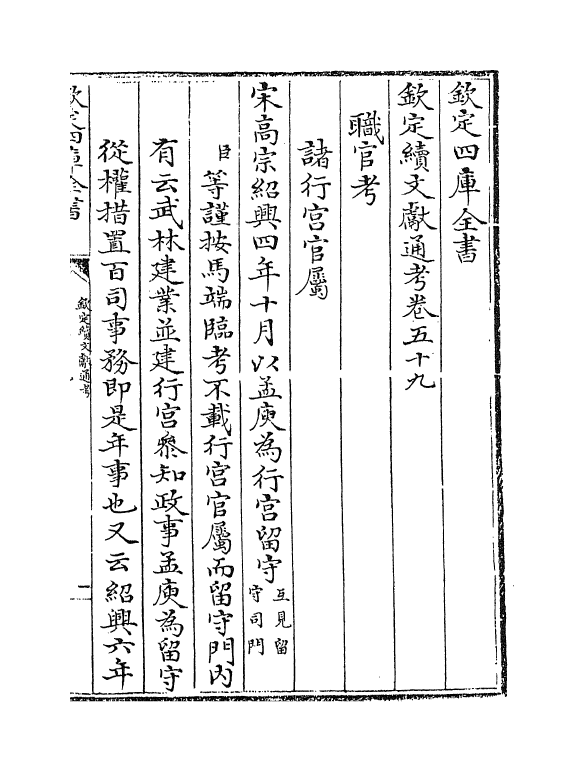 欽定四庫全書
欽定續文獻通考卷五十九
職官考
諸行宫官屬
宋高宗紹興四年十月以孟庾為行宫留守互見留守司門
臣等謹按馬端臨考不載行宫官屬而留守門内
有云武林建業並建行宫叅知政事孟庾為留守
從權措置百司事務即是年事也又云紹興六年
欽定四庫全書
欽定續文獻通考